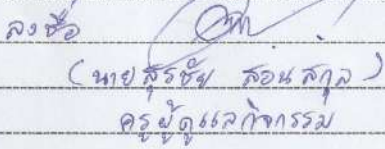 ลงชื่อ
(นายสุรชัย สอนสกุล)
ครูผู้ดูแลกิจกรรม